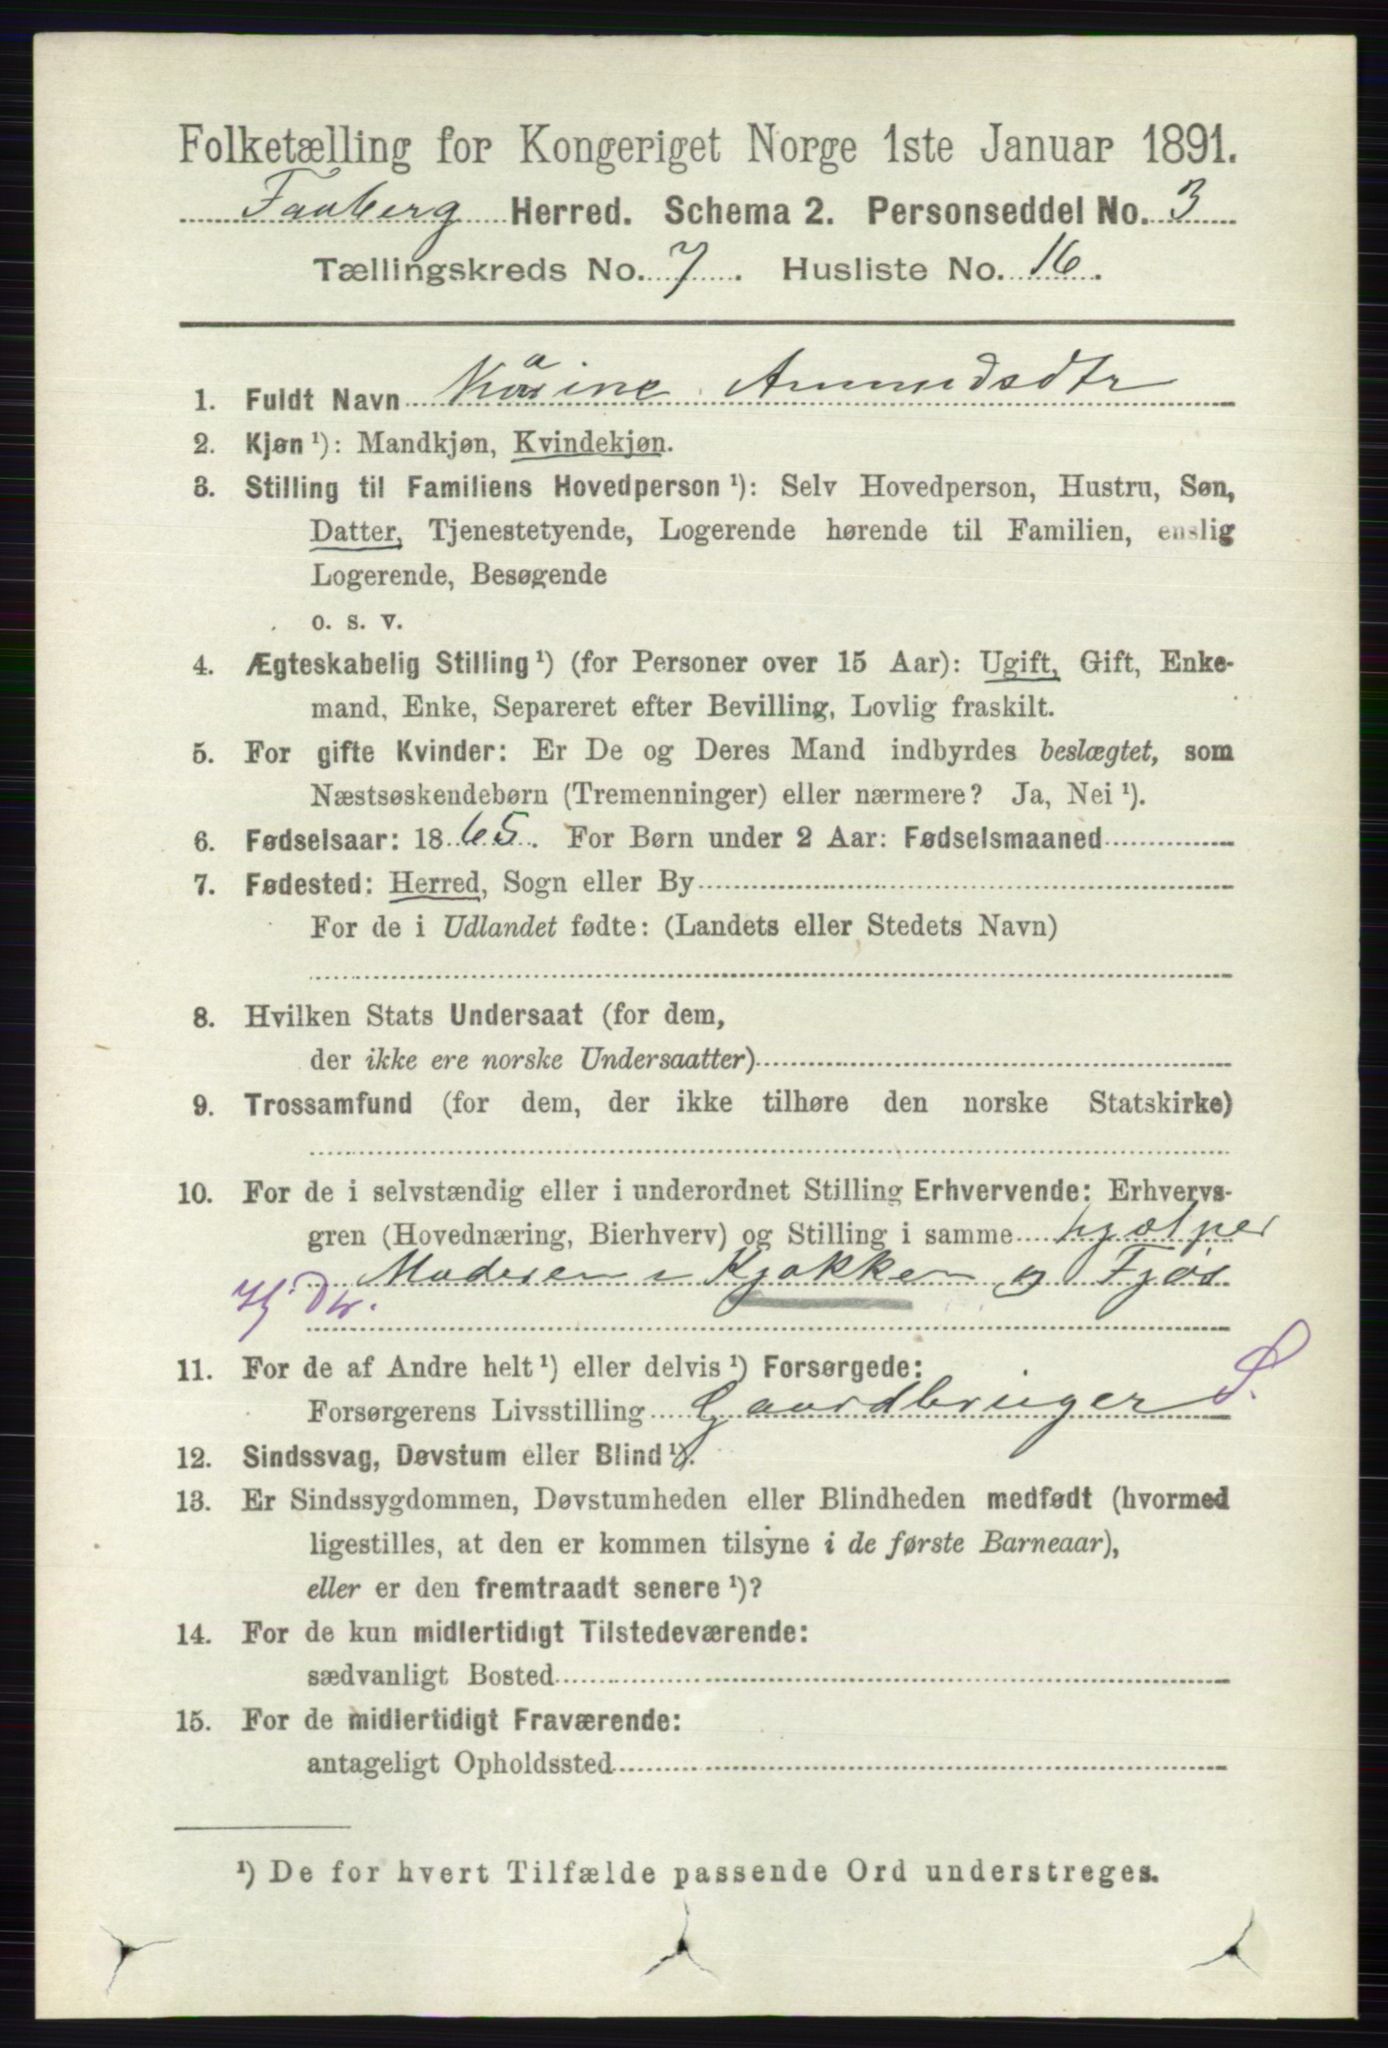 Folketælling for Kongeriget Norge 1ste Januar 1891.
Faaberg Herred. Schema 2. Personseddel No. 3
Tællingskreds No. 7. Husliste No. 16.
1. Fuldt Navn Karine Amundsdtr
2. Kjøn ¹): Mandkjøn, Kvindekjøn.
3. Stilling til Familiens Hovedperson ¹): Selv Hovedperson, Hustru, Søn,
Datter, Tjenestetyende, Logerende hørende til Familien, enslig
Logerende, Besøgende
o. s. v.
4. Ægteskabelig Stilling ¹) (for Personer over 15 Aar): Ugift, Gift, Enke-
mand, Enke, Separeret efter Bevilling, Lovlig fraskilt.
5. For gifte Kvinder: Er De og Deres Mand indbyrdes beslægtet, som
Næstsøskendebørn (Tremenninger) eller nærmere? Ja, Nei ¹).
6. Fødselsaar: 1865. For Børn under 2 Aar: Fødselsmaaned
7. Fødested: Herred, Sogn eller By
For de i Udlandet fødte: (Landets eller Stedets Navn)
8. Hvilken Stats Undersaat (for dem,
der ikke ere norske Undersaatter)
9. Trossamfund (for dem, der ikke tilhøre den norske Statskirke)
10. For de i selvstændig eller i underordnet Stilling Erhvervende: Erhvervs-
gren (Hovednæring, Bierhverv) og Stilling i samme hjælper
Moderen i Kjøkken og Fjøs
11. For de af Andre helt ¹) eller delvis ¹) Forsørgede:
Forsørgerens Livsstilling Gaardbruger S.
12. Sindssvag, Døvstum eller Blind ¹).
13. Er Sindssygdommen, Døvstumheden eller Blindheden medfødt (hvormed
ligestilles, at den er kommen tilsyne i de første Barneaar),
eller er den fremtraadt senere ¹)?
14. For de kun midlertidigt Tilstedeværende:
sædvanligt Bosted
15. For de midlertidigt Fraværende:
antageligt Opholdssted
¹) De for hvert Tilfælde passende Ord understreges.